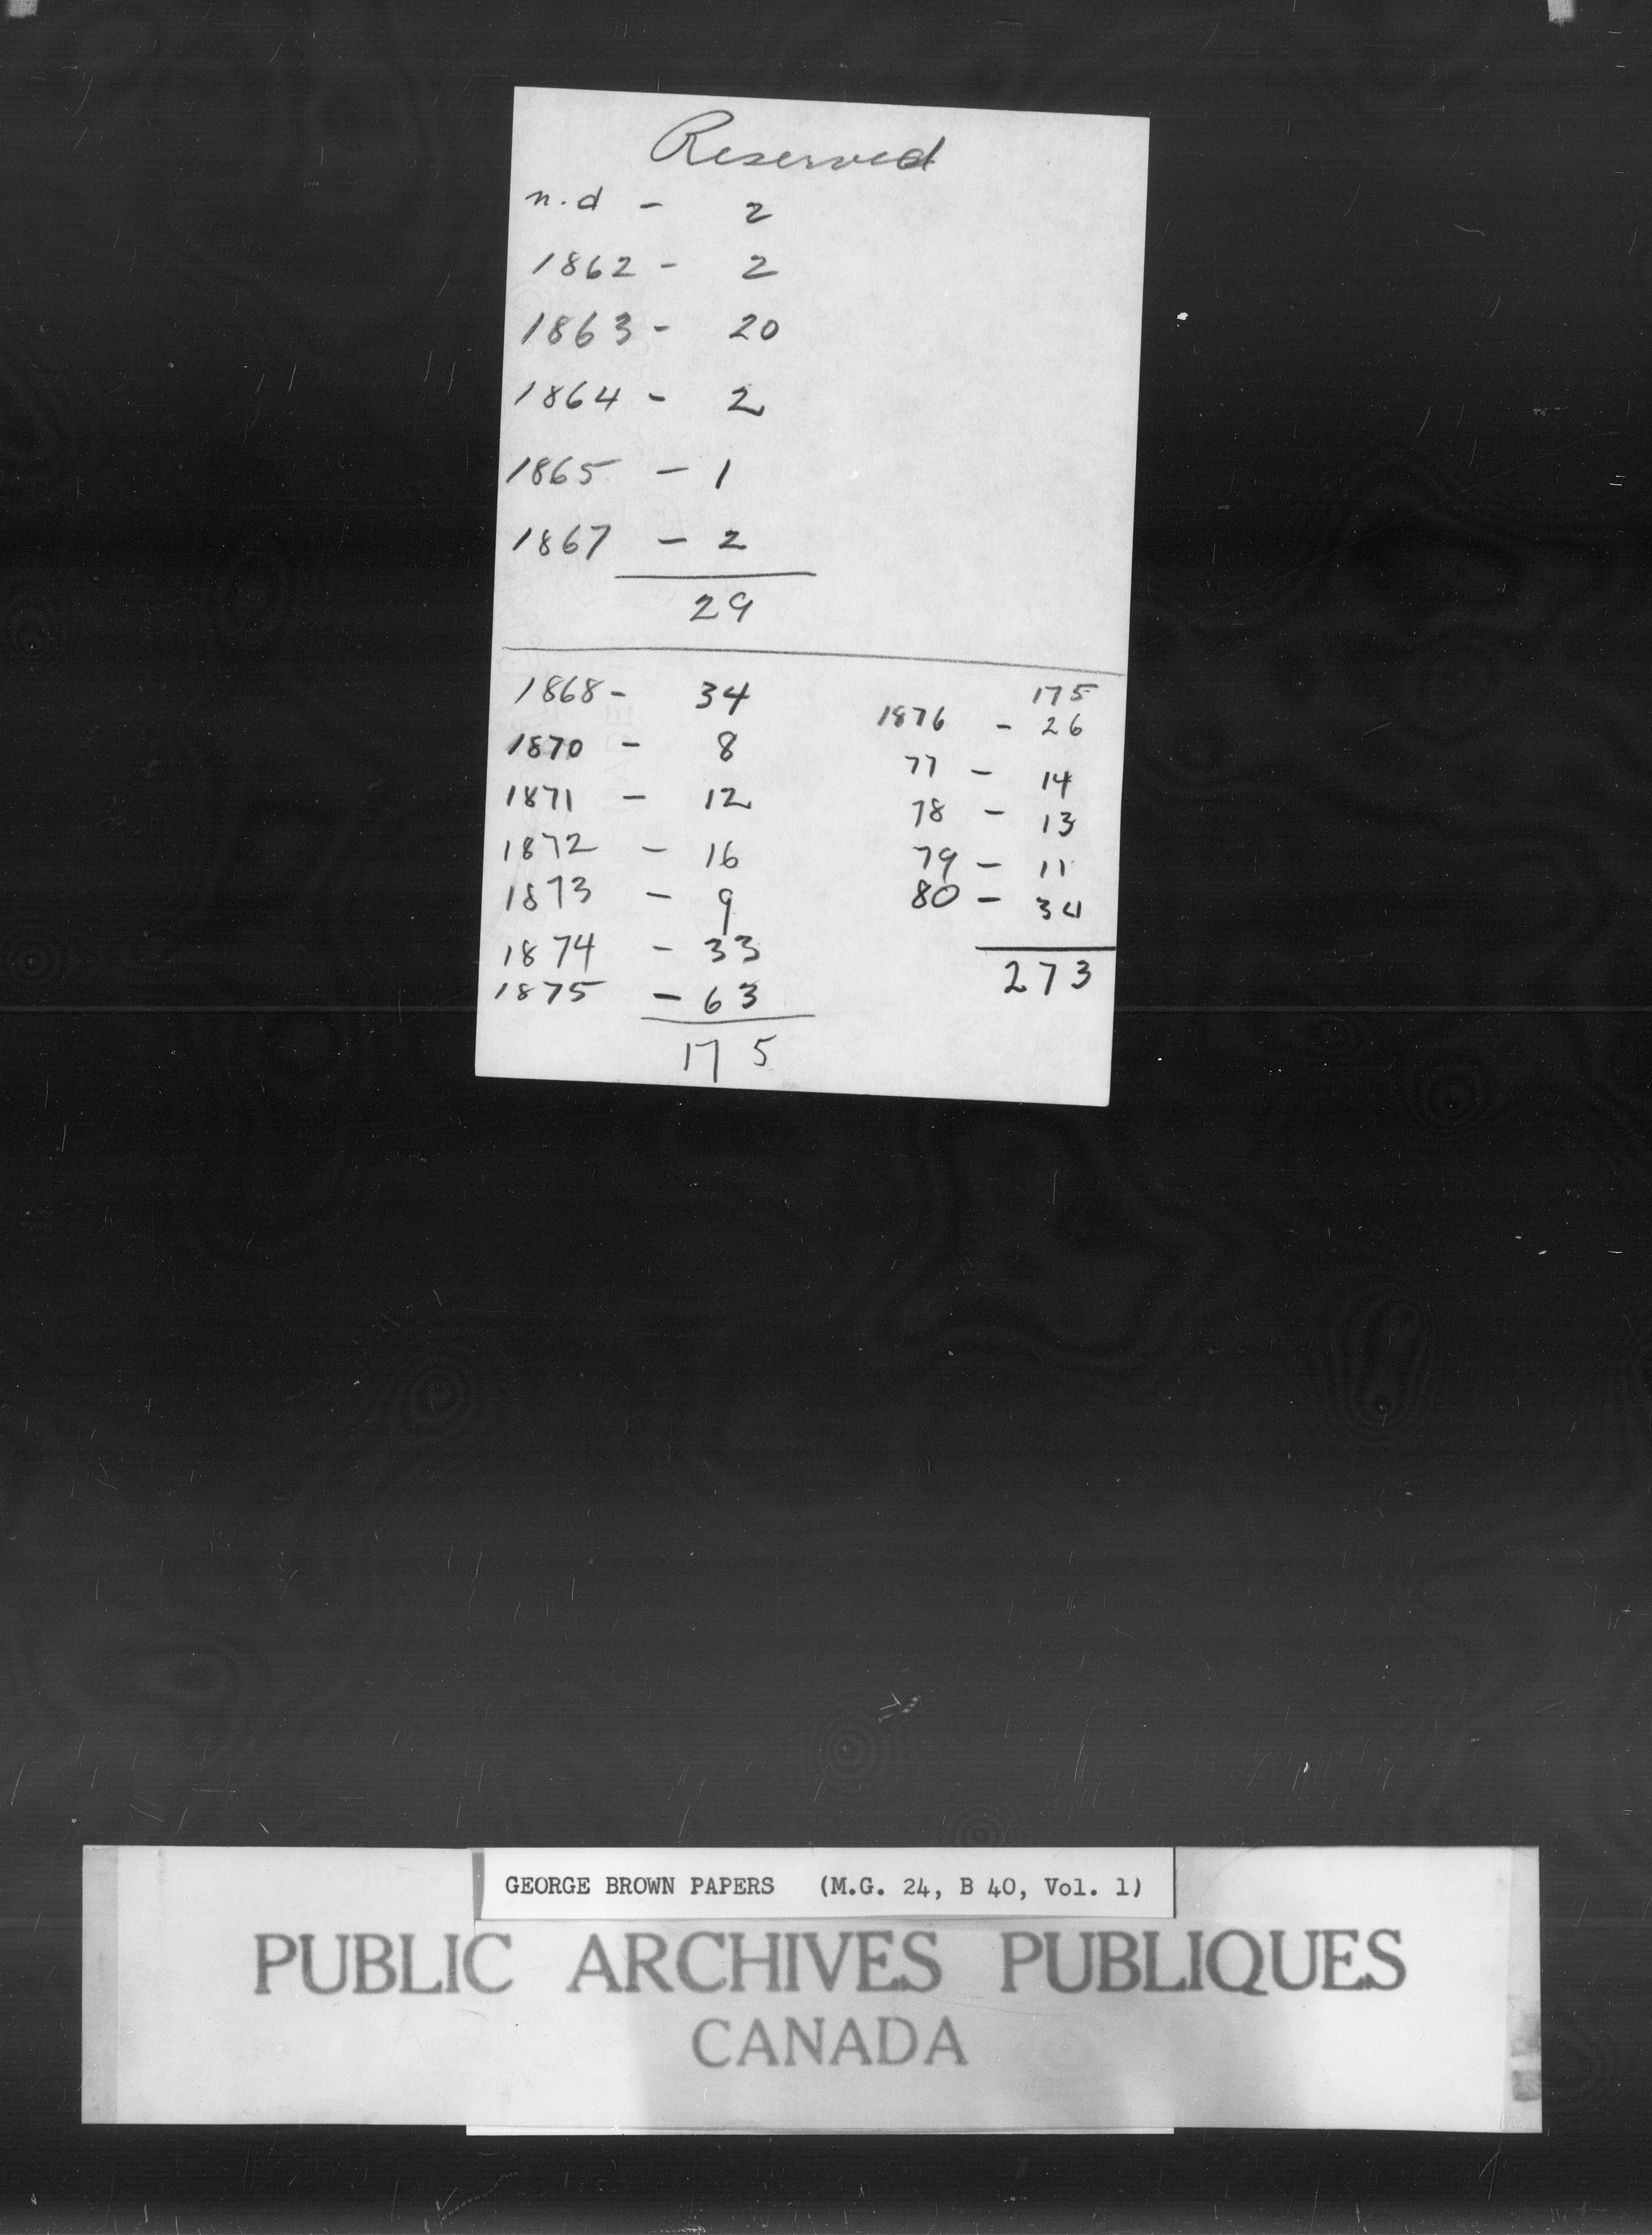 Reserved
n.d - 2
1862 - 2
1863 - 20
1864 - 2
1865 - 1
1867 - 2
29
1868 - 34
1870 - 8
1871 - 12
1872 - 16
1873 - 9
1874 - 33
1875 - 63
175
175
1876 - 26
77 - 14
78 - 13
79 - 11
80 - 34
273
GEORGE BROWN PAPERS (M.G. 24, B 40, Vol. 1)
PUBLIC ARCHIVES PUBLIQUES
CANADA